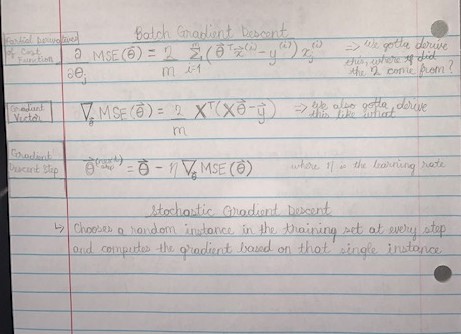 Batch Gradient Descent
Partial Derivatives
of Cost
Function
∂/∂θⱼ MSE(θ⃗) = 2/m Σᵢ₌₁ᵐ (θ⃗ᵀx⃗⁽ⁱ⁾ - y⁽ⁱ⁾) xⱼ⁽ⁱ⁾
⇒ We gotta derive
this, where tf did
the 2 come from?
Gradient
Vector
∇θ⃗ MSE(θ⃗) = 2/m Xᵀ(Xθ⃗ - y⃗)
⇒ We also gotta derive
this like what
Gradient
Descent Step
θ⃗⁽ⁿᵉˣᵗ ˢᵗᵉᵖ⁾ = θ⃗ - η ∇θ⃗ MSE(θ⃗)
where η = the learning rate
Stochastic Gradient Descent
↳ Chooses a random instance in the training set at every step
and computes the gradient based on that single instance